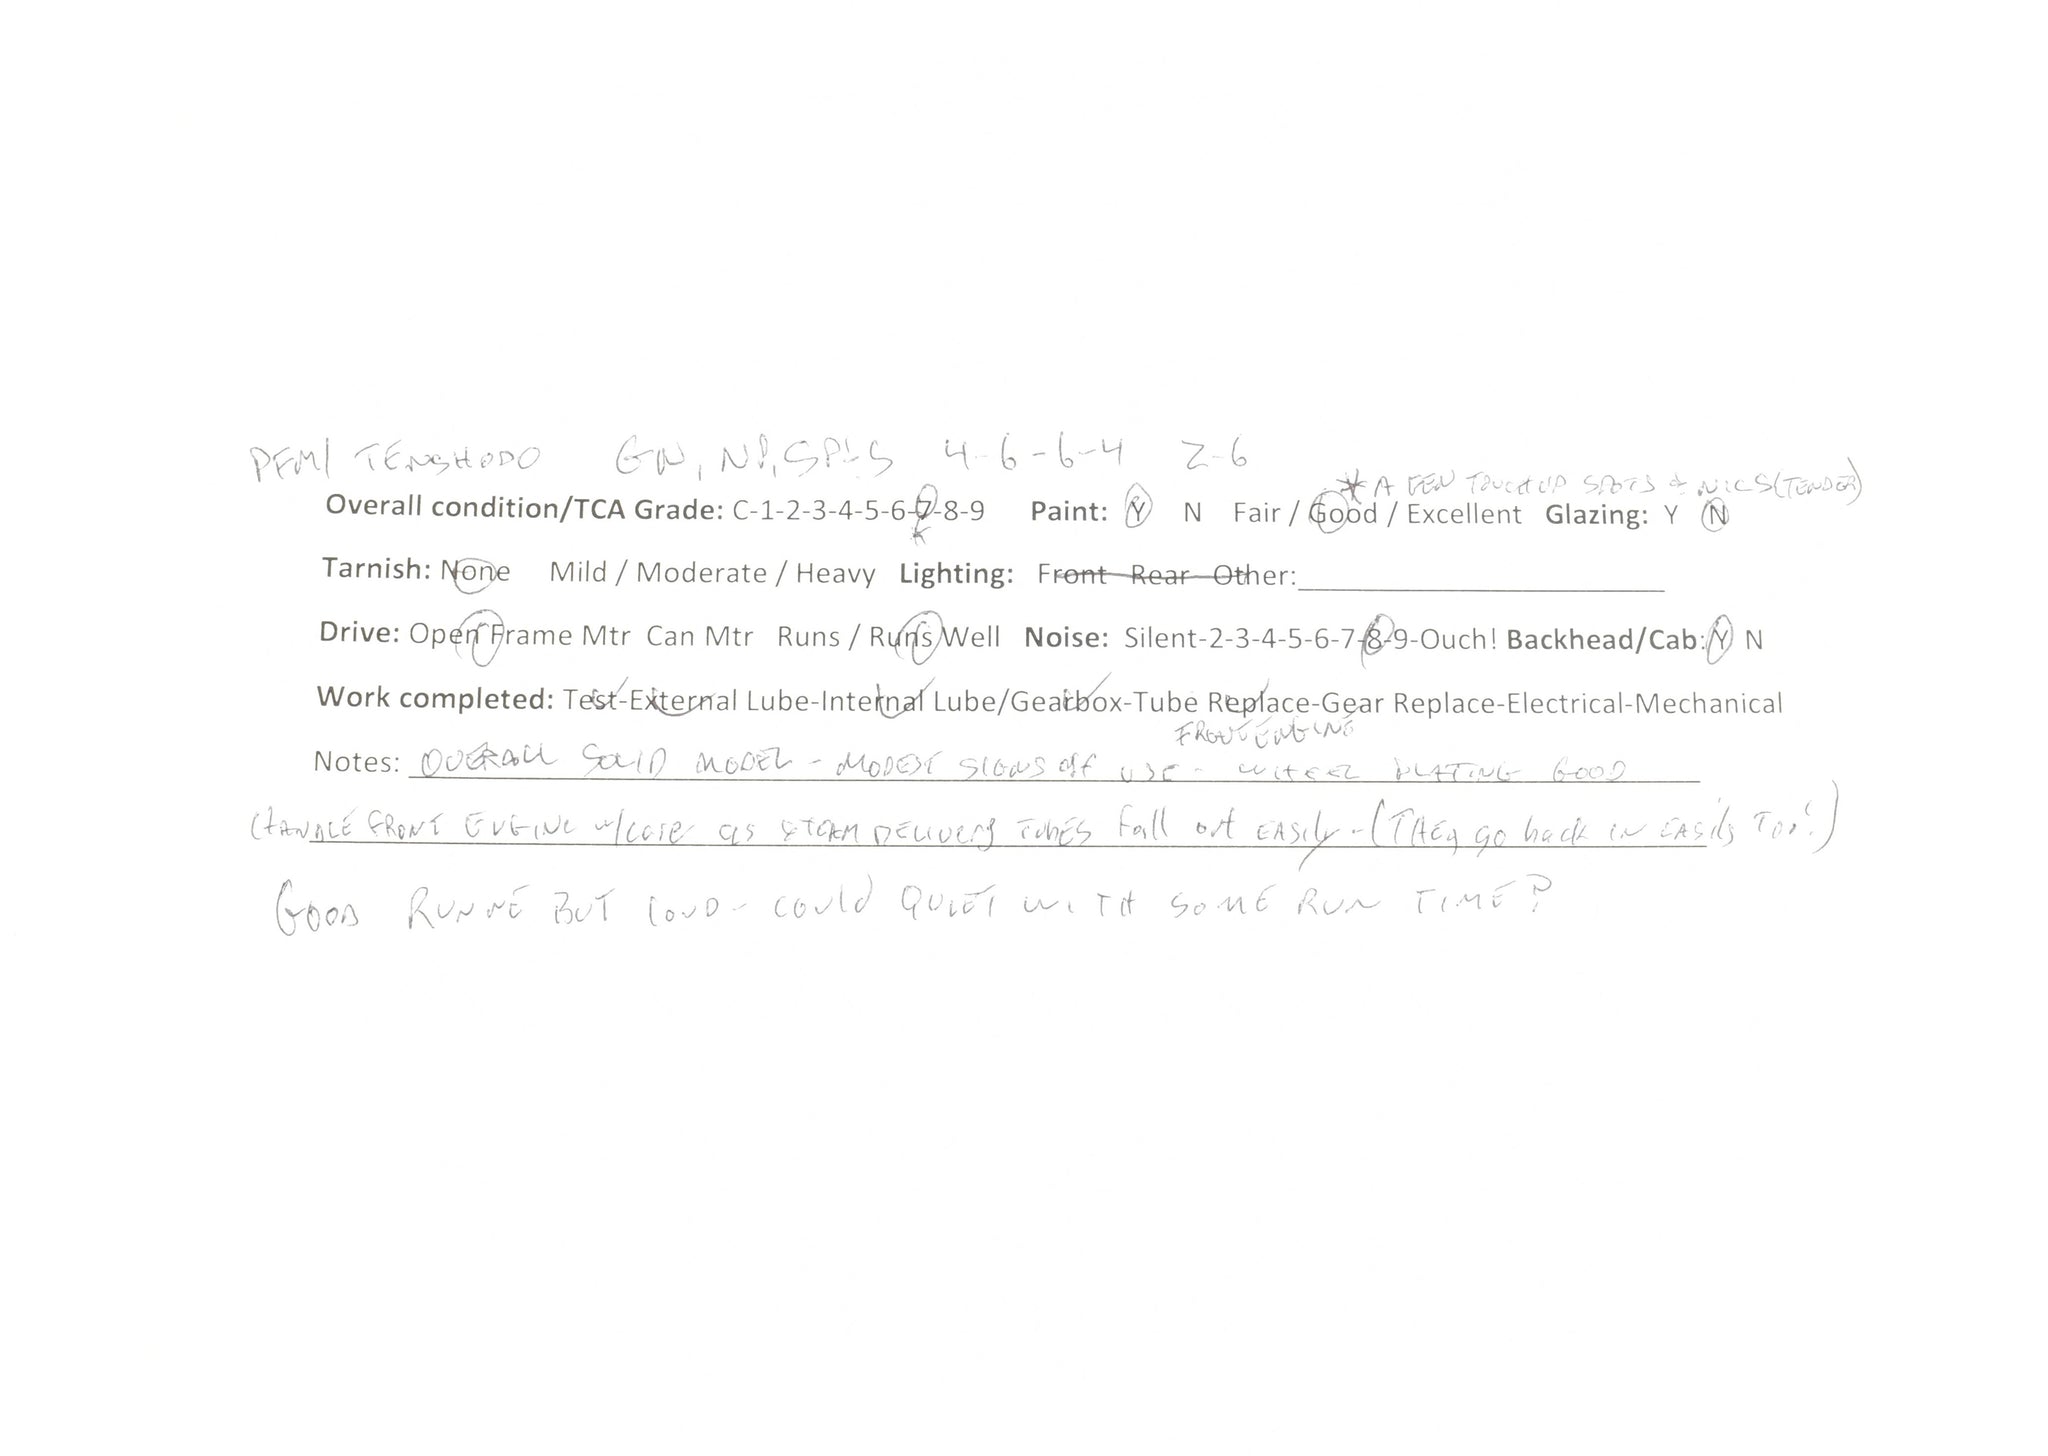 PFM/ TENSHODO GN, NP, SP&S 4-6-6-4 Z-6
* A FEW TOUCHUP SPOTS & NICS (TENDER)
Overall condition/TCA Grade: C-1-2-3-4-5-6-7-8-9 Paint: Y N Fair / Good / Excellent Glazing: Y N
Tarnish: None Mild / Moderate / Heavy Lighting: Front Rear Other:
Drive: Open Frame Mtr Can Mtr Runs / Runs Well Noise: Silent-2-3-4-5-6-7-8-9-Ouch! Backhead/Cab: Y N
Work completed: Test-External Lube-Internal Lube/Gearbox-Tube Replace-Gear Replace-Electrical-Mechanical
FRONT ENGINE
Notes: OVERALL SOLID MODEL - MODEST SIGNS OF USE - WHEEL PLATING GOOD
HANDLE FRONT ENGINE w/care as STEAM DELIVERY TUBES Fall out EASILY - (THEy go back in EASILY TOO!)
GOOD RUNNE BUT LOUD - COULD QUIET WITH SOME RUN TIME?